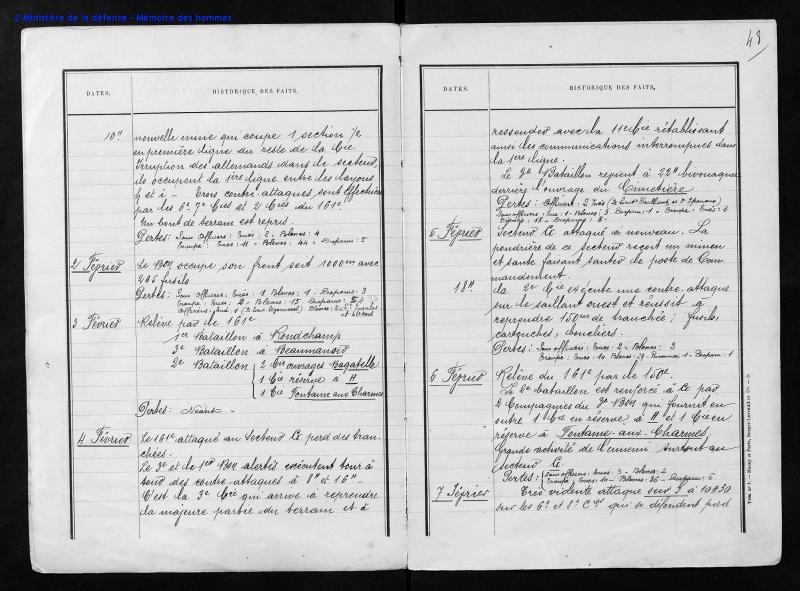 © Ministère de la défense - Mémoire des hommes
DATES. HISTORIQUE DES FAITS.
10H nouvelle mine qui coupe 1 section 1/2
en première ligne du reste de la Cie
Irruption des allemands dans le secteur,
ils occupent la 1ère ligne entre les layons
h et i - Trois contre-attaques sont effectuées
par les 6e 7e Cies et 2 Cies du 161e
Un bout de terrain est repris.
Pertes: Sous officiers: Tués: 2 - Blessés: 4
Troupe: Tués: 11 - Blessés: 44 - Disparus: 5
2 Février Le Bon occupe son front soit 1000m avec
265 fusils
Pertes: Sous officiers: Tués: 1 Blessés: 1 - Disparus: 3
Troupe: Tués: 2 - Blessés: 15 Disparus:
Officiers: Tué: 1 Blessés: 2
3 Février Relève par le 161e
1er Bataillon à Rondchamp
3e Bataillon à Beaumanoir
2e Bataillon 2 Cies ouvrages Bagatelle
1 Cie réserve à H
1 Cie Fontaine aux Charmes
Pertes: Néant -
4 Février Le 161e attaqué au Secteur perd des tran-
chées.
Le 3e et le 1er Bon alertés exécutent tour à
tour des contre-attaques à 8H et 16H -
C'est la 9e Cie qui arrive à reprendre
la majeure partie du terrain et à
48
DATES. HISTORIQUE DES FAITS.
ressouder avec la 11e Cie rétablissant
ainsi les communications interrompues dans
la 1ère ligne.
Le 2e Bataillon rejoint à 22H bivouaquer
derrière l'ouvrage du Cimetière
Pertes: Officiers: 2 Tués
Sous officiers: Tué: 1 - Blessés: 3 - Disparu: 1 - Troupe: Tués: 6
18 - Disparus: 8 -
5 Février Secteur attaqué à nouveau. La
poudrière de ce secteur reçoit un minen
et saute faisant sauter le poste de Com-
mandement.
18H La 2e Cie exécute une contre-attaque
sur le saillant ouest et réussit à
reprendre 150m de tranchée; fusils,
cartouches, boucliers.
Pertes: Sous officiers: Tués: 2 - Blessés: 3
Troupe: Tués: 10 Blessés: 29 1 - Disparu: 1
6 Février Relève du 161e par le 150e.
Le 2e bataillon est renforcé à par
2 Compagnies du 3e Bon qui fournit en
outre 1 Cie en réserve à H et 1 Cie en
réserve à Fontaine-aux-Charmes.
Grande activité de l'ennemi surtout au
Secteur
Pertes: Sous officiers: Tués: 3 - Blessés: 2
Troupe: Tués: 10 - Blessés: 36 - Disparus: 6.
7 Février Très violente attaque sur J à 10H30
sur les 6e et 8e Cies qui se défendent pied
Nancy et Paris, Berger-Levrault et Cie